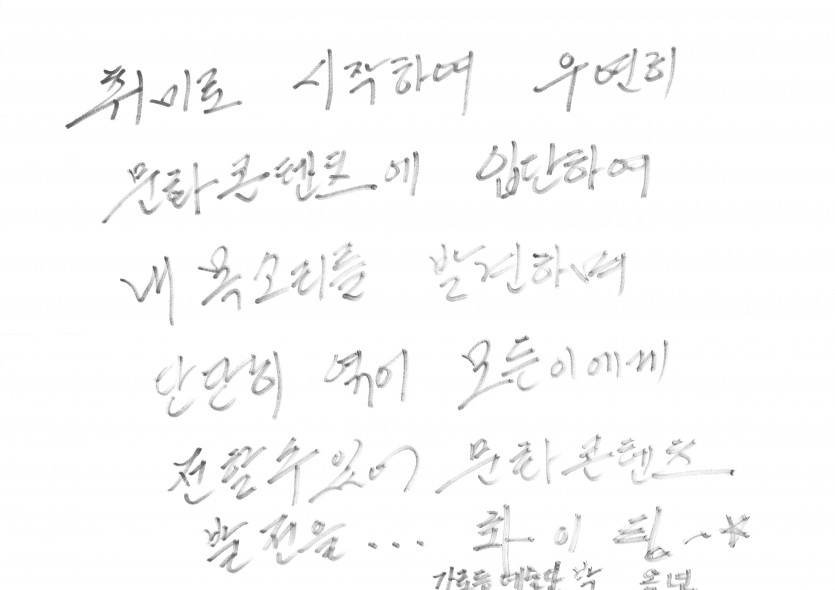 취미로 시작하여 우연히
문화콘텐트에 입단하여
내 목소리를 발견하며
단단히 엮어 모든이에게
전할수 있어 문화콘텐츠
발전을... 화이팅~*
박